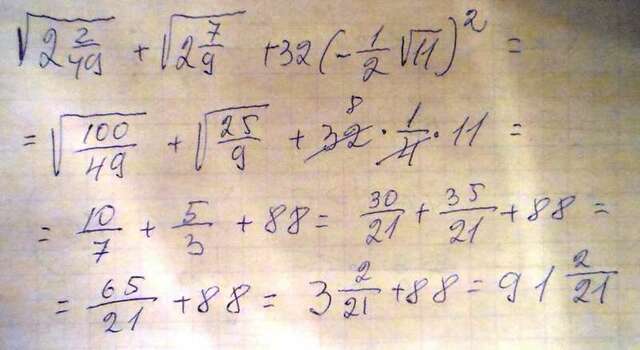 √(2 2/49) + √(2 7/9) + 32(-1/2 √11)² =
= √(100/49) + √(25/9) + 32 8 · 1/4 · 11 =
= 10/7 + 5/3 + 88 = 30/21 + 35/21 + 88 =
= 65/21 + 88 = 3 2/21 + 88 = 91 2/21